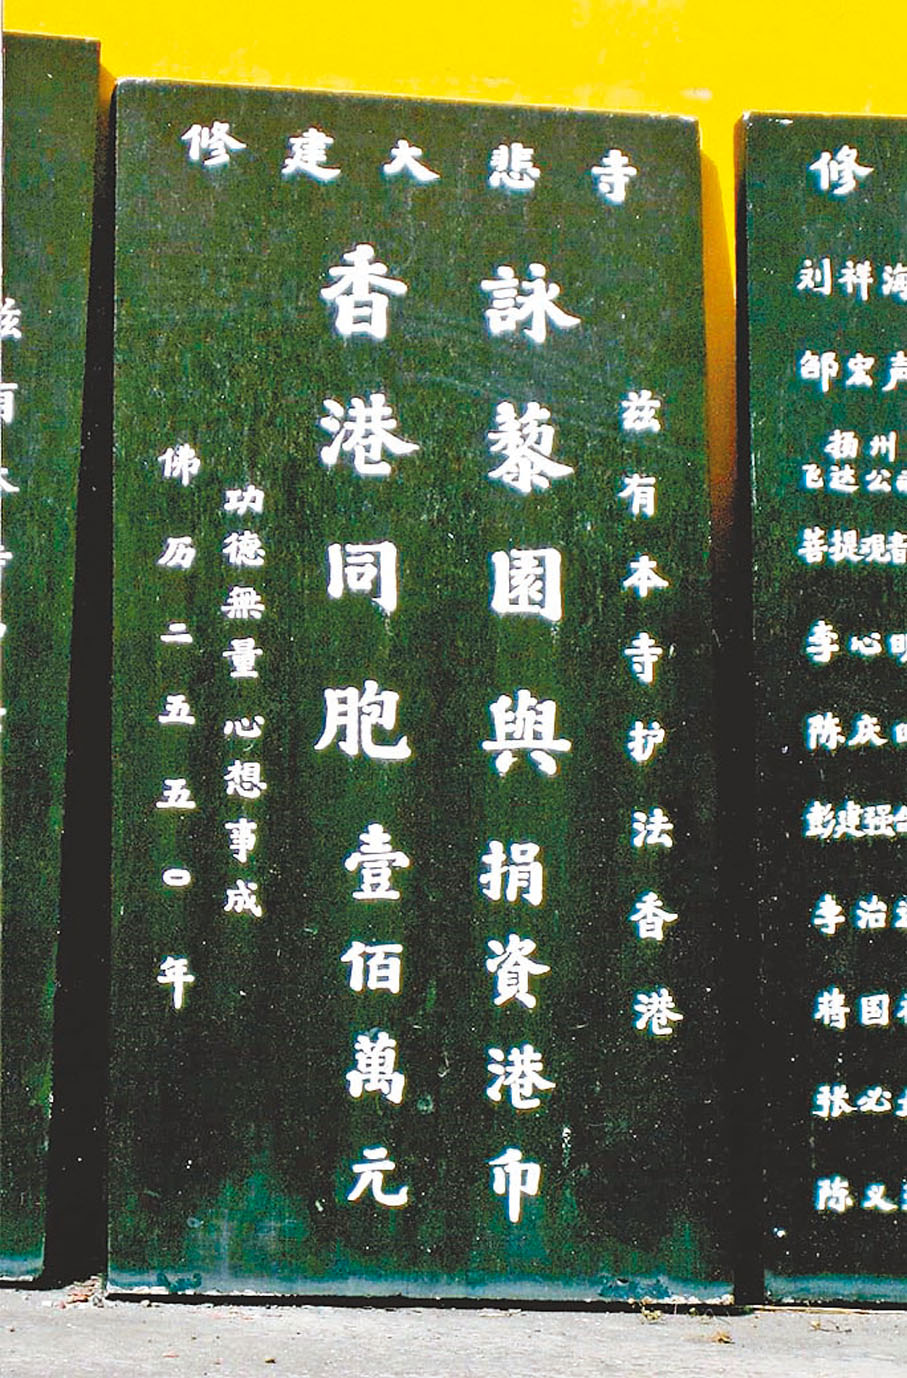 修建大悲寺
兹有本寺护法香港
詠藜園與捐資港币
香港同胞壹佰萬元
功德無量心想事成
佛历二五五〇年
修
刘祥海
邹宏声
扬州
飞达公
菩提观音
李心明
陈庆
彭建强
李治
蒋国
张必
陈义